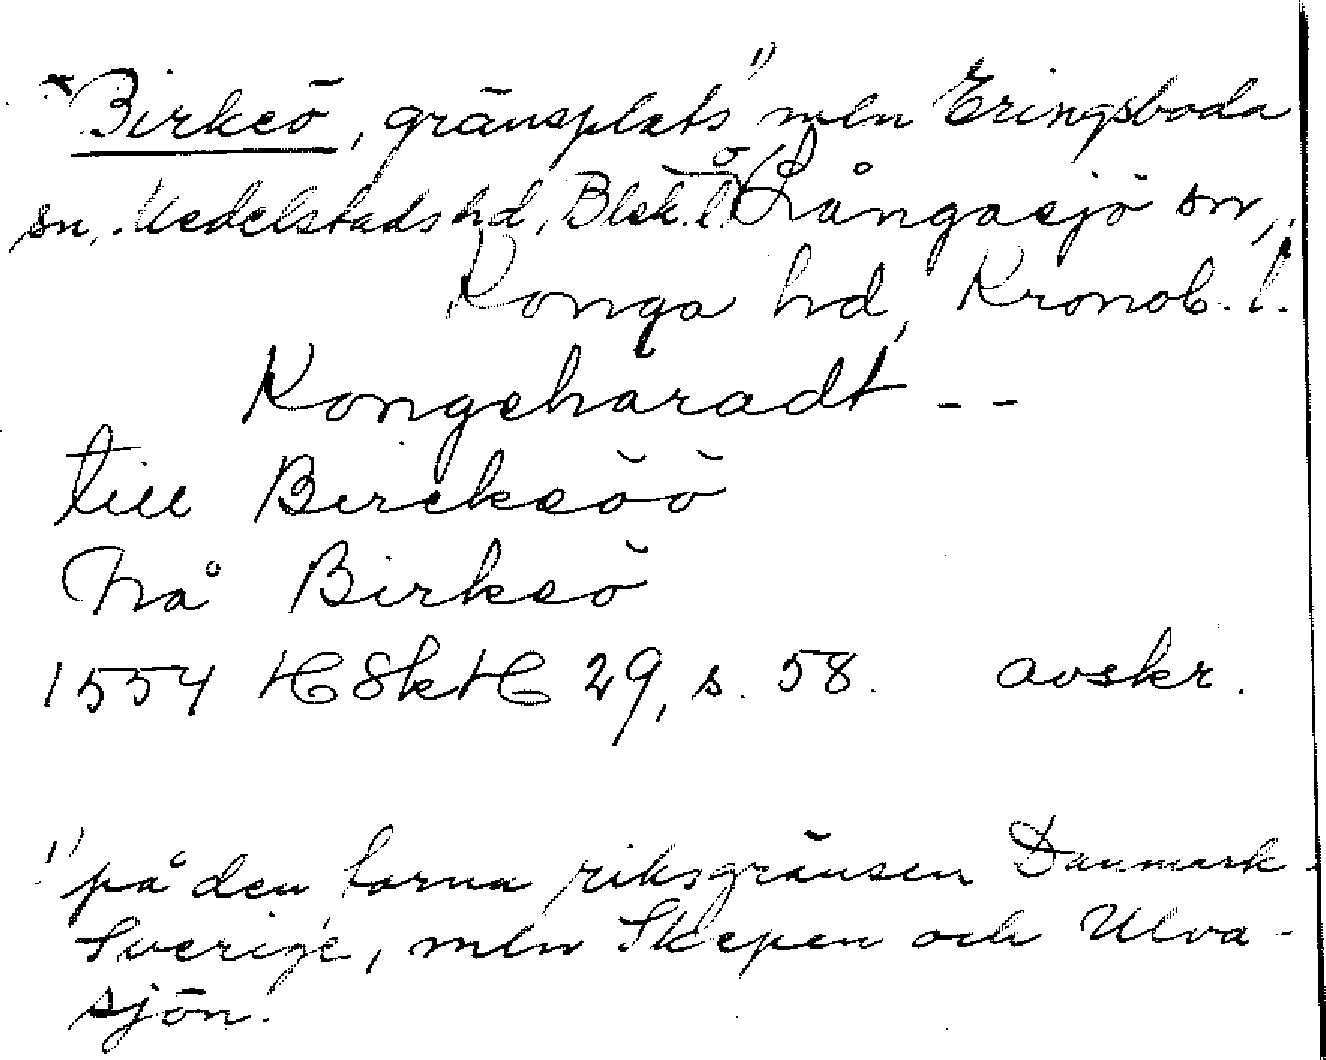 *Birkeö, gränsplats 1) mln Eringsboda
sn, Medelstads hd, Blek. l. o Långasjö sn,
Konga hd, Kronob. l.
Kongeharadt --
till Bircksöö
frå Birksö
1554 HSkH 29, s. 58. avskr.
1) på den forna riksgränsen Danmark-
Sverige, mln Skepen och Ulva-
sjön.